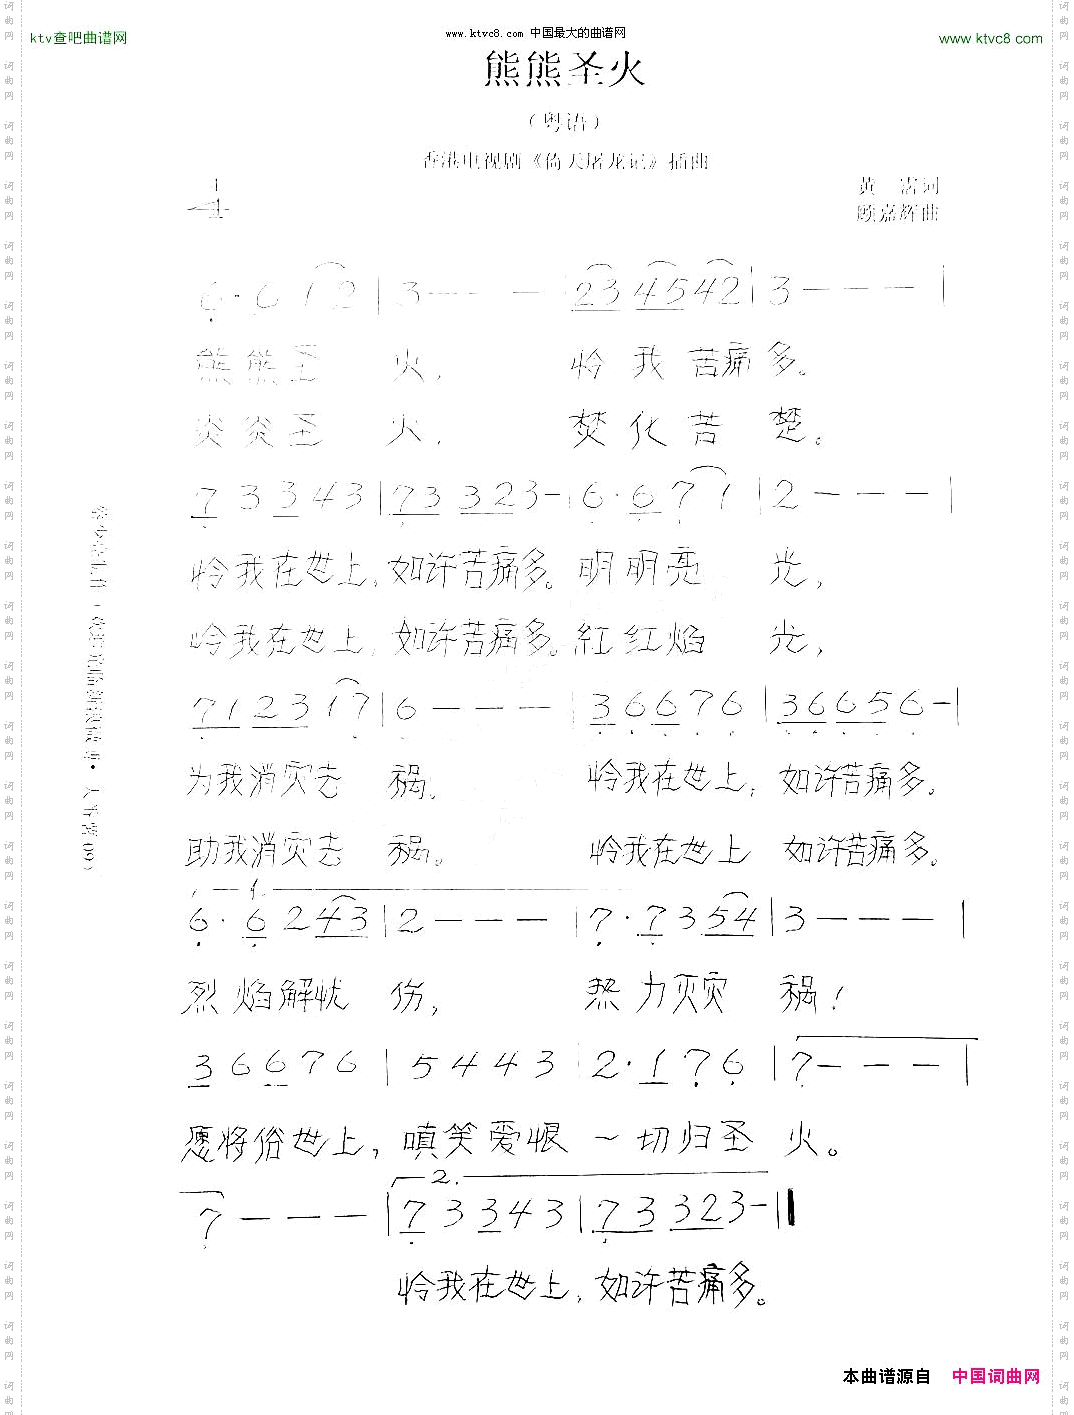 www.ktvc8.com 中国最大的曲谱网
ktv查吧曲谱网
www ktvc8 com
熊熊圣火
（粤语）
香港电视剧《倚天屠龙记》插曲
黄 霑词
顾嘉辉曲
6·6 1 2 | 3 — — — | 23 45 42 | 3 — — — |
熊熊圣 火， 怜我苦痛多。
炎炎圣 火， 焚化苦 楚。
7 3 3 4 3 | 73 323— | 6·6 7 1 | 2 — — — |
怜我在世上，如许苦痛多。明明亮 光，
怜我在世上，如许苦痛多。红红焰 光，
71 23 17 | 6 — — — | 3 6 6 7 6 | 36 65 6— |
为我消灾去 祸。 怜我在世上，如许苦痛多。
助我消灾去 祸。 怜我在世上 如许苦痛多。
1.
6·6 2 43 | 2 — — — | 7·7 3 54 | 3 — — — |
烈焰解忧 伤， 热力灭灾 祸！
3 6 6 7 6 | 5 4 4 3 | 2·1 7 6 | 7 — — — |
愿将俗世上，嗔笑爱恨 一切归圣 火。
2.
7 — — — | 7 3 3 4 3 | 73 323— ‖
怜我在世上，如许苦痛多。
本曲谱源自 中国词曲网